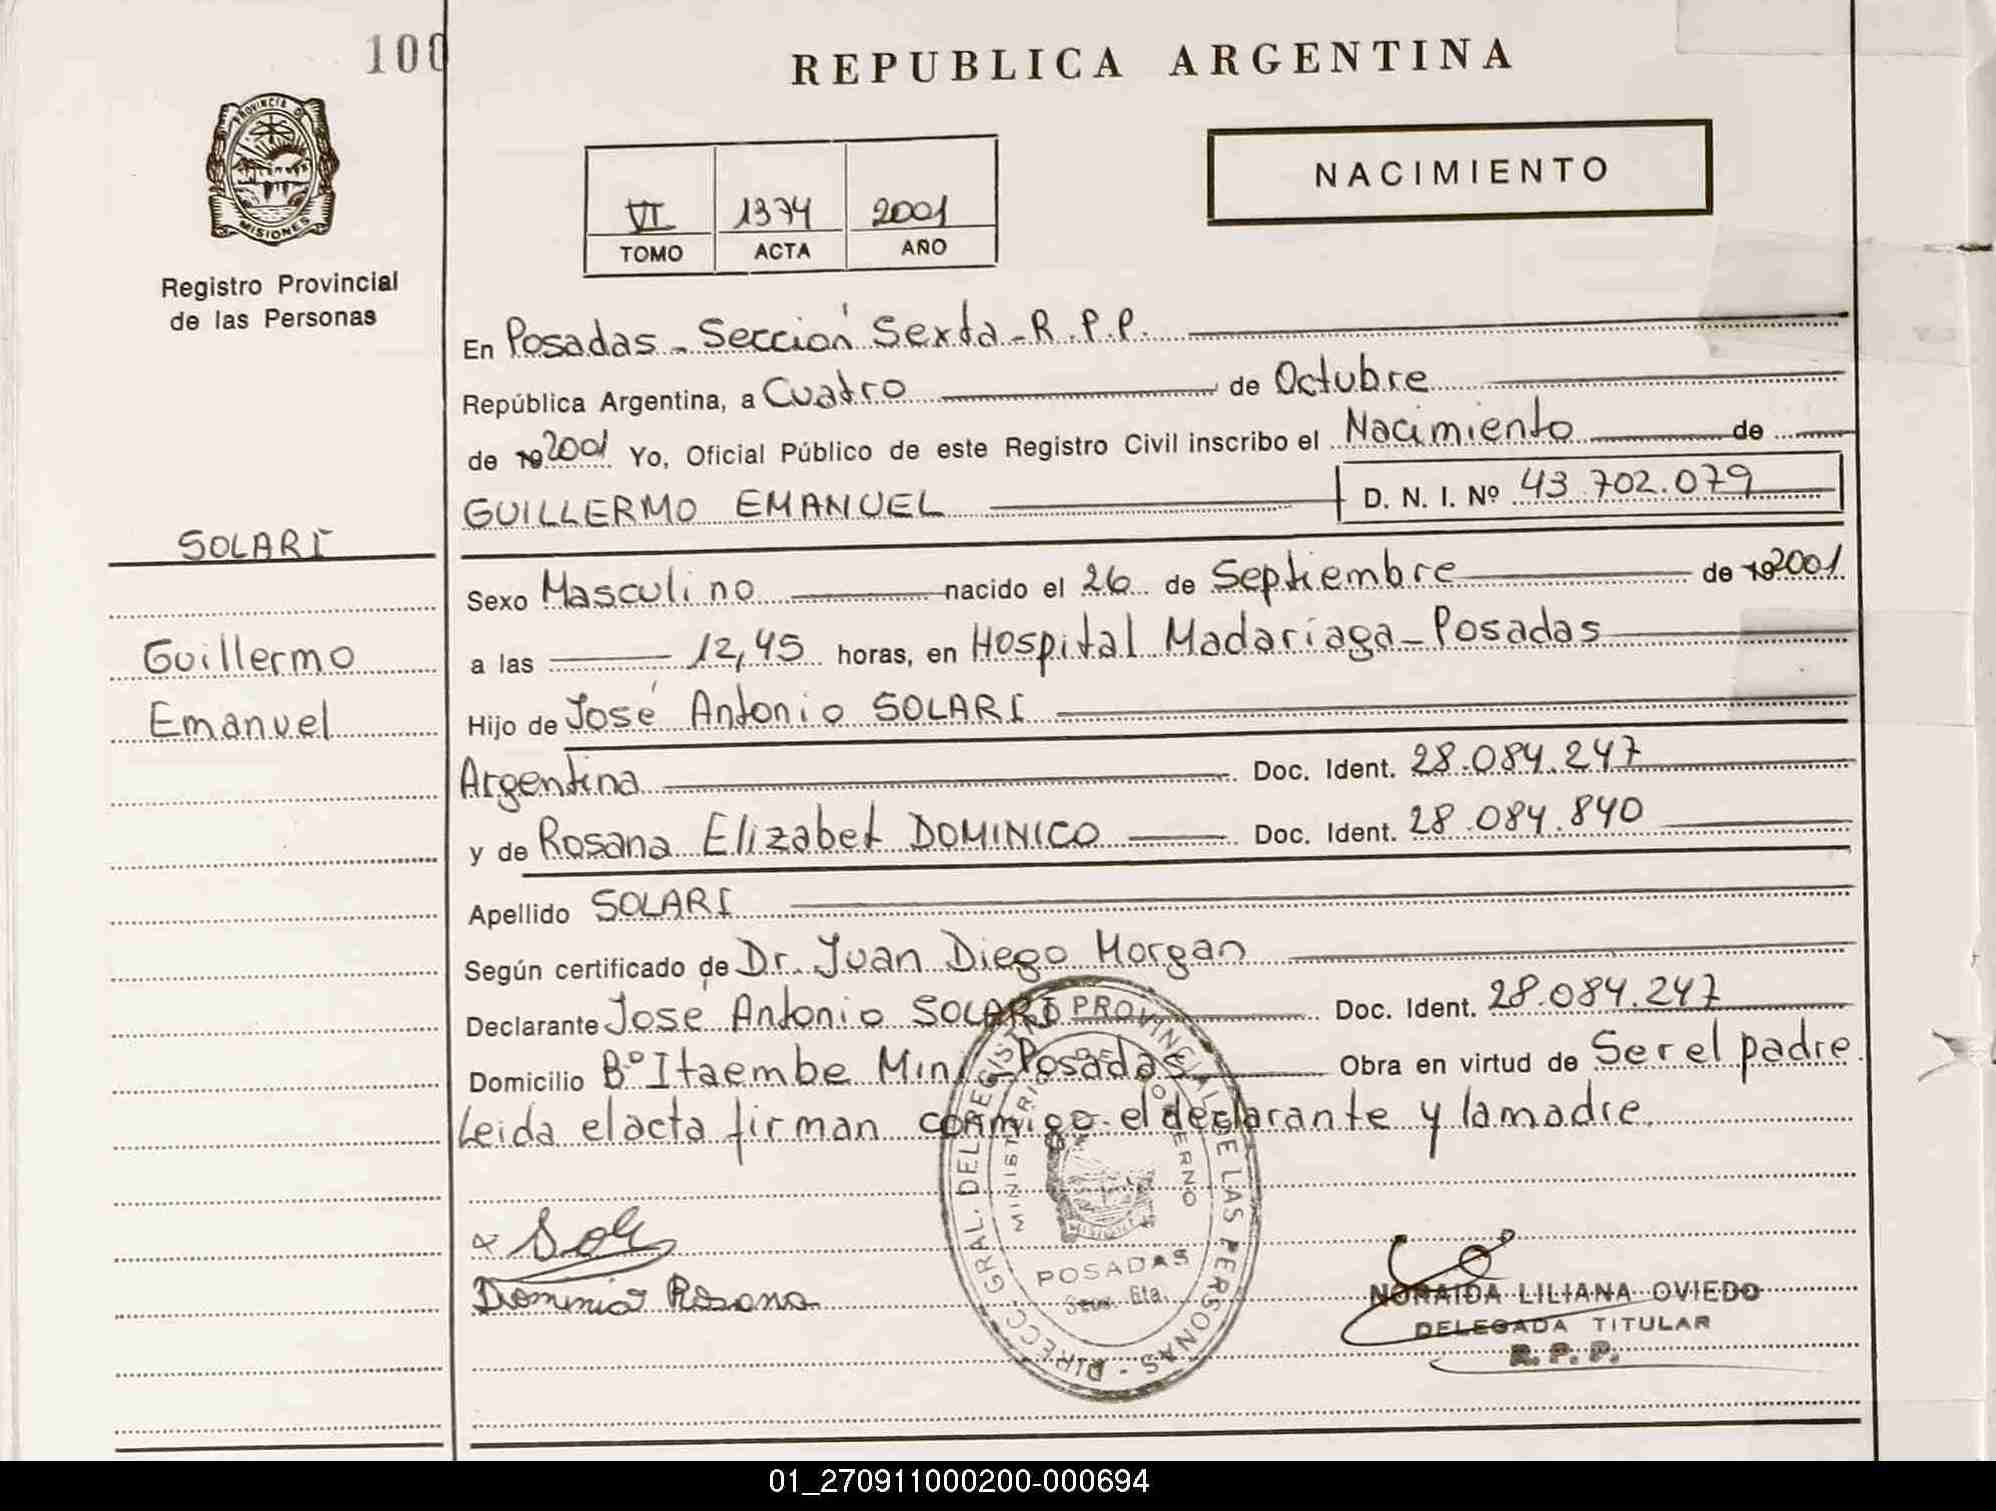 100
REPUBLICA ARGENTINA
PROVINCIA DE
MISIONES
NACIMIENTO
VI 1374 2001
TOMO ACTA AÑO
Registro Provincial
de las Personas
En Posadas - Sección Sexta - R.P.P.
República Argentina, a Cuatro de Octubre
de 19 2001 Yo, Oficial Público de este Registro Civil inscribo el Nacimiento de
GUILLERMO EMANUEL D. N. I. Nº 43.702.079
SOLARI
Sexo Masculino nacido el 26 de Septiembre de 19 2001
Guillermo
a las 12,45 horas, en Hospital Madariaga - Posadas
Emanuel
Hijo de José Antonio SOLARI
Argentina Doc. Ident. 28.084.247
y de Rosana Elizabet DOMINICO Doc. Ident. 28.084.840
Apellido SOLARI
Según certificado de Dr. Juan Diego Morgan
Declarante José Antonio SOLARI Doc. Ident. 28.084.247
Domicilio Bº Itaembe Mini - Posadas Obra en virtud de Ser el padre
Leida el acta firman conmigo el declarante y la madre
DIRECC. GRAL. DEL REGISTRO PROVINCIAL DE LAS PERSONAS
MINISTERIO DE GOBIERNO
POSADAS
Secc. 6ta.
Dominico Rosana
NORAIDA LILIANA OVIEDO
DELEGADA TITULAR
R. P. P.
01_270911000200-000694